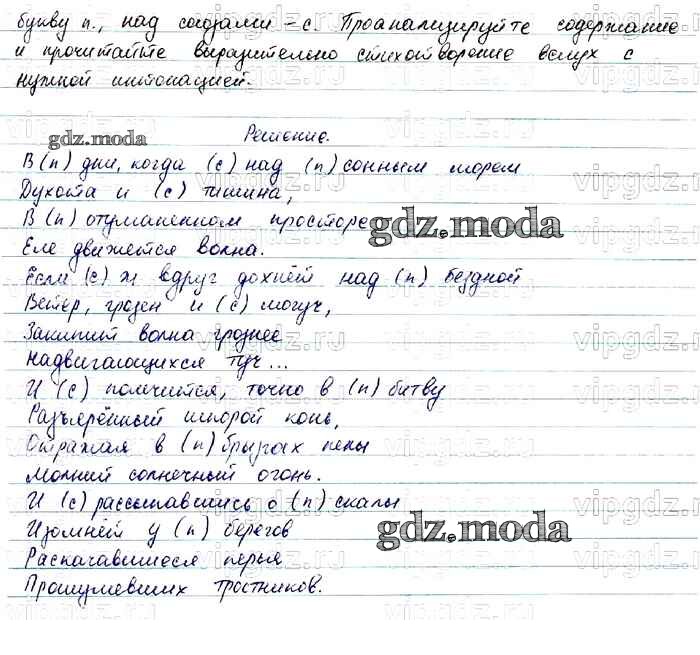 букву п., над союзами – с. Проанализируйте содержание
и прочитайте выразительно стихотворение вслух с
нужной интонацией.
gdz.moda
Решение.
В (п) дни, когда (с) над (п) сонным морем
Духота и (с) тишина,
В (п) отуманенном просторе
gdz.moda
Еле движется волна.
Если (с) ж вдруг дохнёт над (п) бездной
Ветер, грозен и (с) могуч,
Закипит волна грознее
Надвигающихся туч...
И (с) помчится, точно в (п) битву
Разъярённый шпорой конь,
Отражая в (п) брызгах пены
Молний солнечный огонь.
И (с) рассыпавшись о (п) скалы
Изомнёт у (п) берегов
gdz.moda
Раскачавшиеся перья
Прошумевших тростников.